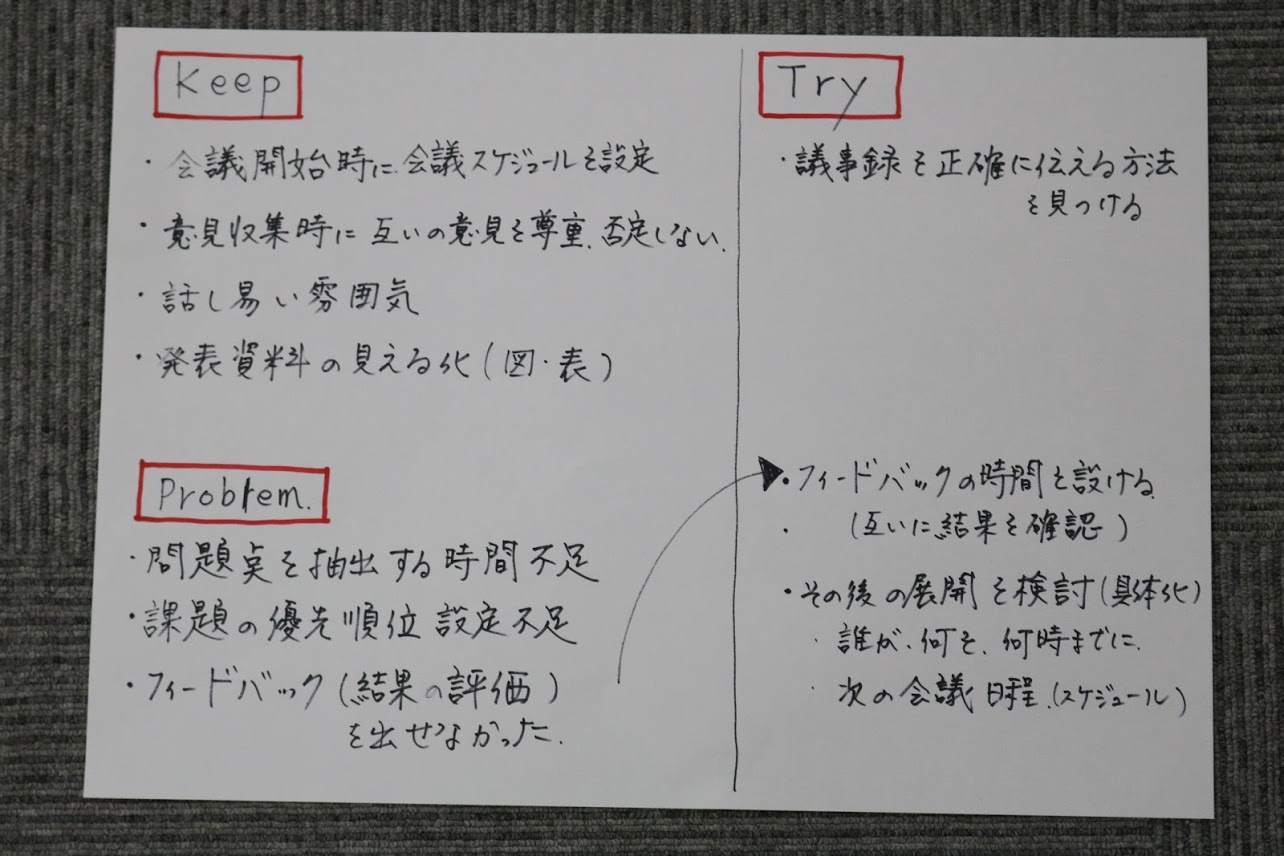 Keep
・会議開始時に、会議スケジュールを設定
・意見収集時に互いの意見を尊重、否定しない、
・話し易い雰囲気
・発表資料の見える化(図・表)
Problem.
・問題点を抽出する時間不足
・課題の優先順位設定不足
・フィードバック(結果の評価)
を出せなかった.
Try
・議事録を正確に伝える方法
を見つける
・フィードバックの時間を設ける
・(互いに結果を確認)
・その後の展開を検討(具体化)
・誰が、何を、何時までに
・次の会議日程.(スケジュール)